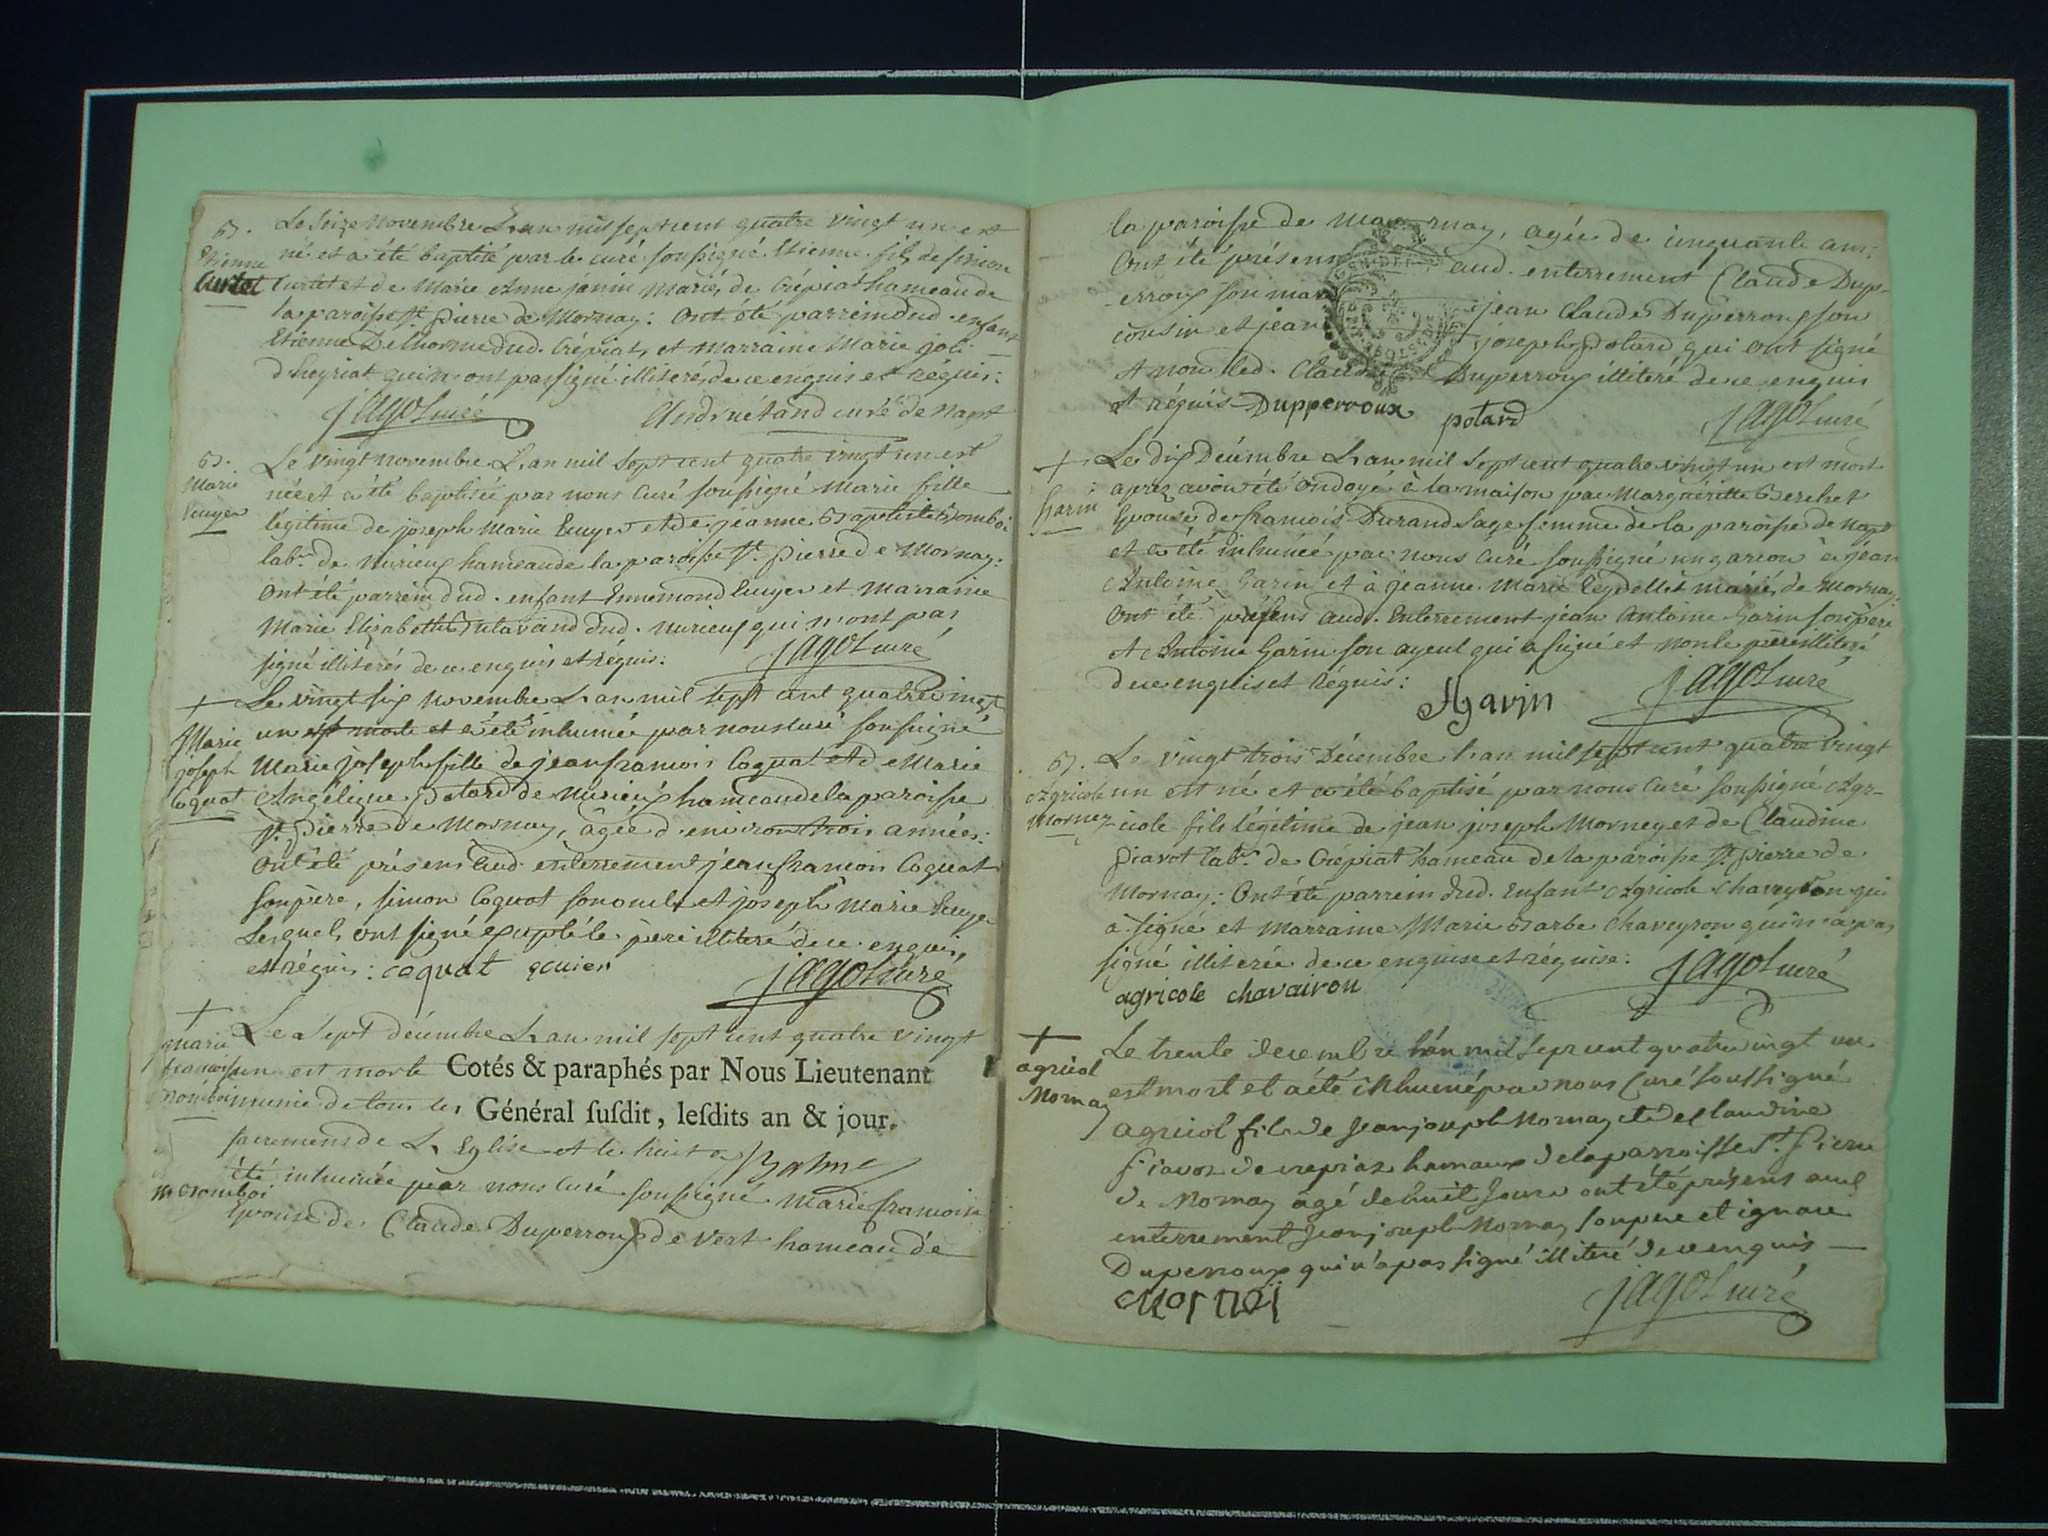 B.
Etienne
Curtet
Le seize novembre L'an mil sept cent quatre vingt un est
né et a été baptité par le curé soussigné Etienne fils de simon
Curtet et de Marie Anne janin mariés de Crépiat hameau de
la paroisse St. pierre de Mornay: Ont été parrein dud. enfant
Etienne Delhorme dud. Crépiat, et marraine Marie joli
d'heyriat qui n'ont pas signé illiterés de ce enquis et réquis:
jAGOT curé
Andruétand curé de Napt
B.
Marie
Ecuyer
Le vingt novembre L'an mil sept cent quatre vingt un est
née et a été baptisée par nous Curé soussigné Marie fille
légitime de joseph Marie Ecuyer et de jeanne Baptiste Bomboi
labr. de Nurieux hameau de la paroisse St. pierre de Mornay:
Ont été parrein dud. enfant Ennemond Ecuyer et marraine
Marie Elisabeth dud. nurieux qui n'ont pas
signé illiterés de ce enquis et réquis:
jAGOT curé
+
Marie
joseph
Coquat
Le vingt six novembre L'an mil sept cent quatre vingt
un est morte et a été inhumée par nous curé soussigné
Marie joseph fille de jean francois Coquat et de Marie
Angélique potard de nurieux hameau de la paroisse
St. pierre de Mornay, âgée d'environ trois années:
Ont été présens aud. enterrement jean francois Coquat
son père, simon Coquat son oncle et joseph Marie Ecuyer
Lesquels ont signé excepté le père illiteré de ce enquis,
et réquis: coquat ecuier
jAGOT curé
+
marie
francoise
Bomboi
Le sept décembre L'an mil sept cent quatre vingt
un est morte Cotés & paraphés par Nous Lieutenant
munie de tous les Général ſuſdit, leſdits an & jour.
sacremens de L'Eglise et le huit a
été inhumée par nous curé soussigné Marie francoise
m Bomboi
Epouse de Claude Duperroux de Vert hameau de
la paroisse de Mornay, agée de cinquante ans:
Ont été présens aud. enterrement Claude Dup-
-erroux son mari jean Claude Duperroux son
cousin et jean joseph potard qui ont signé
et non led. Claude Duperroux illiteré de ce enquis
et réquis Dupperroux potard
jAGOT curé
+
Garin
Le dix Décembre L'an mil sept cent quatre vingt un est mort
après avoir été ondoyé à la maison par Marguéritte Berchet
Epouse de francois Durand sage femme de la paroisse de napt
et a été inhumée par nous curé soussigné un garcon à jean
Antoine Garin et à jeanne Marie Reydellet mariés de Mornay:
Ont été présens aud. Enterrement jean Antoine Garin son père
et Antoine Garin son ayeul qui a signé et non le père illiteré
de ce enquis et réquis:
AGarin
jAGOT curé
B.
Agricole
Mornex
Le vingt trois Décembre L'an mil sept cent quatre vingt
un est né et a été baptisé par nous Curé soussigné Agr-
-icole fils légitime de jean joseph Morney et de Claudine
piavot labr. de Crépiat hameau de la paroisse St. pierre de
Mornay: Ont été parrein dud. Enfant Agricole Chaveyron qui
à signé et marraine Marie Barbe Chaveyron qui n'a pas
signé illiterée de ce enquise et réquise:
jAGOT curé
agricole chavairon
+
agricol
Mornay
Le trente decembre L'an mil sept cent quatre vingt un
est mort et a été inhumé par nous Curé soussigné
agricol fils de jean joseph Mornay et de Claudine
piavoz de crepiaz hamaux de la parroisse St. pierre
de Mornay âgé de huit jours ont été présens aud
enterrement jean joseph Mornay son pere et ignace
Duperroux qui n'a pas signé illiteré de ce enquis
Mornai
jAGOT curé